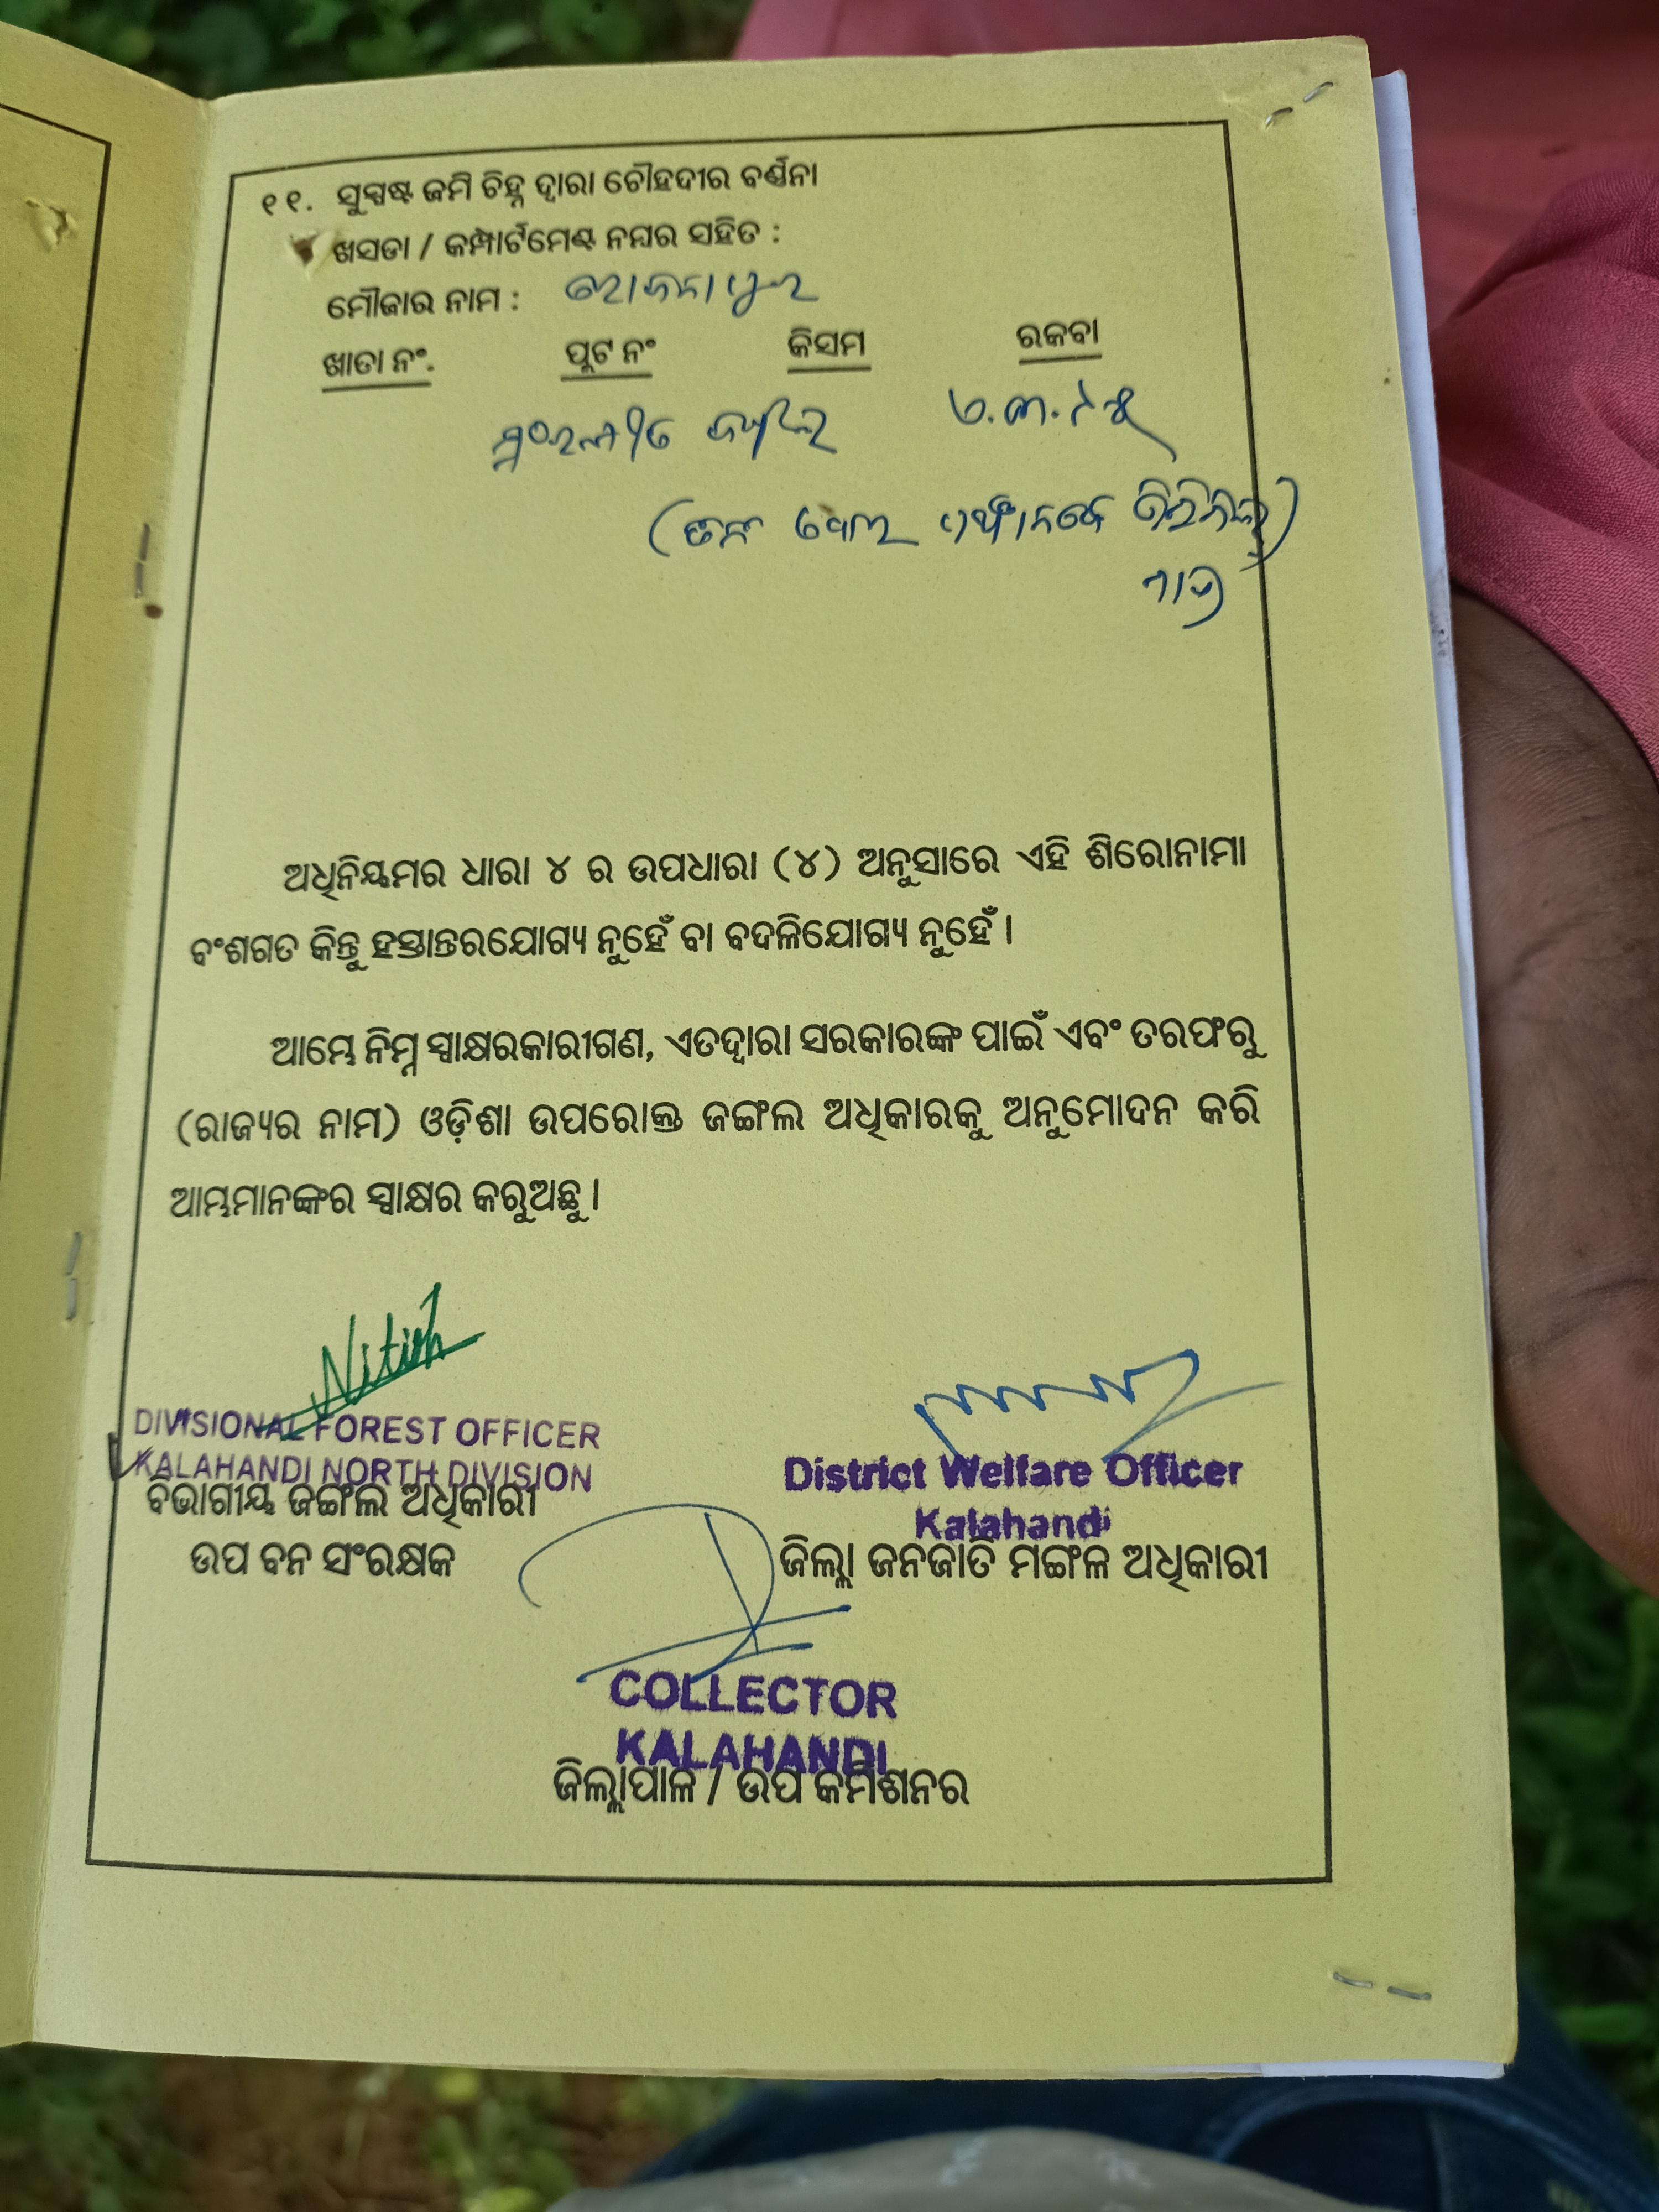 ୧୧. ସୁସ୍ପଷ୍ଟ ଜମି ଚିହ୍ନ ଦ୍ୱାରା ଚୌହଦୀର ବର୍ଣ୍ଣନା
ଖସଡା / କମ୍ପାର୍ଟମେଣ୍ଟ ନମ୍ବର ସହିତ :
ମୌଜାର ନାମ :
ଖାତା ନଂ. ପ୍ଲଟ ନଂ କିସମ ରକବା
ଜଙ୍ଗଲ
ମାତ୍ର
ଅଧିନିୟମର ଧାରା ୪ ର ଉପଧାରା (୪) ଅନୁସାରେ ଏହି ଶିରୋନାମା
ବଂଶଗତ କିନ୍ତୁ ହସ୍ତାନ୍ତରଯୋଗ୍ୟ ନୁହେଁ ବା ବଦଳିଯୋଗ୍ୟ ନୁହେଁ ।
ଆମ୍ଭେ ନିମ୍ନ ସ୍ୱାକ୍ଷରକାରୀଗଣ, ଏତଦ୍ୱାରା ସରକାରଙ୍କ ପାଇଁ ଏବଂ ତରଫରୁ
(ରାଜ୍ୟର ନାମ) ଓଡ଼ିଶା ଉପରୋକ୍ତ ଜଙ୍ଗଲ ଅଧିକାରକୁ ଅନୁମୋଦନ କରି
ଆମ୍ଭମାନଙ୍କର ସ୍ୱାକ୍ଷର କରୁଅଛୁ ।
Nitish
DIVISIONAL FOREST OFFICER
KALAHANDI NORTH DIVISION
ବିଭାଗୀୟ ଜଙ୍ଗଲ ଅଧିକାରୀ
ଉପ ବନ ସଂରକ୍ଷକ
District Welfare Officer
Kalahandi
ଜିଲ୍ଲା ଜନଜାତି ମଙ୍ଗଳ ଅଧିକାରୀ
COLLECTOR
KALAHANDI
ଜିଲ୍ଲାପାଳ / ଉପ କମିଶନର